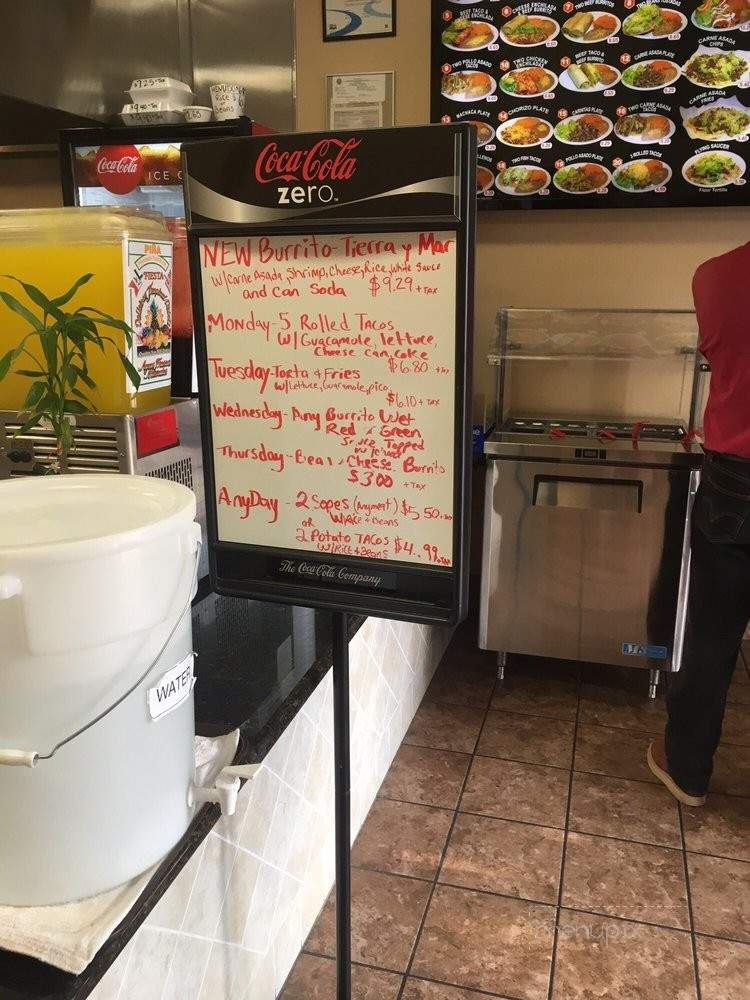 $9.25
$9.40
Rice &
Beans
Coca-Cola
ICE C
Coca-Cola
zero
NEW Burrito - Tierra y Mar
w/Carne Asada, Shrimp, Cheese, Rice, White Sauce
and Can Soda $9.29 + TAX
Monday - 5 Rolled Tacos
w/Guacamole, lettuce,
cheese can, coke
$6.80 + tax
Tuesday - Torta + Fries
w/Lettuce, Guacamole, pico
$6.10 + TAX
Wednesday - Any Burrito Wet
Red & Green
Sauce Topped
Thursday - Bean & Cheese Burrito
$3.00 + TAX
AnyDay - 2 Sopes (Anymeat) $5.50
w/Rice + Beans
OR
2 Potato TACOS $4.99 + TAX
w/Rice + Beans
The Coca-Cola Company
PIÑA
FIESTA
WATER
BEEF TACO &
CHEESE ENCHILADA
TWO BEEF
BURRITOS
TWO POLLO ASADO
TACOS
TWO CHICKEN
ENCHILADAS
BEEF TACO &
BEEF BURRITO
CARNE ASADA PLATE
CARNE ASADA
CHIPS
MACHACA PLATE
CHORIZO PLATE
CARNITAS PLATE
TWO CARNE ASADA
TACOS
CARNE ASADA
FRIES
TWO FISH TACOS
POLLO ASADO PLATE
3 ROLLED TACOS
FLYING SAUCER
Flour Tortilla
menupix